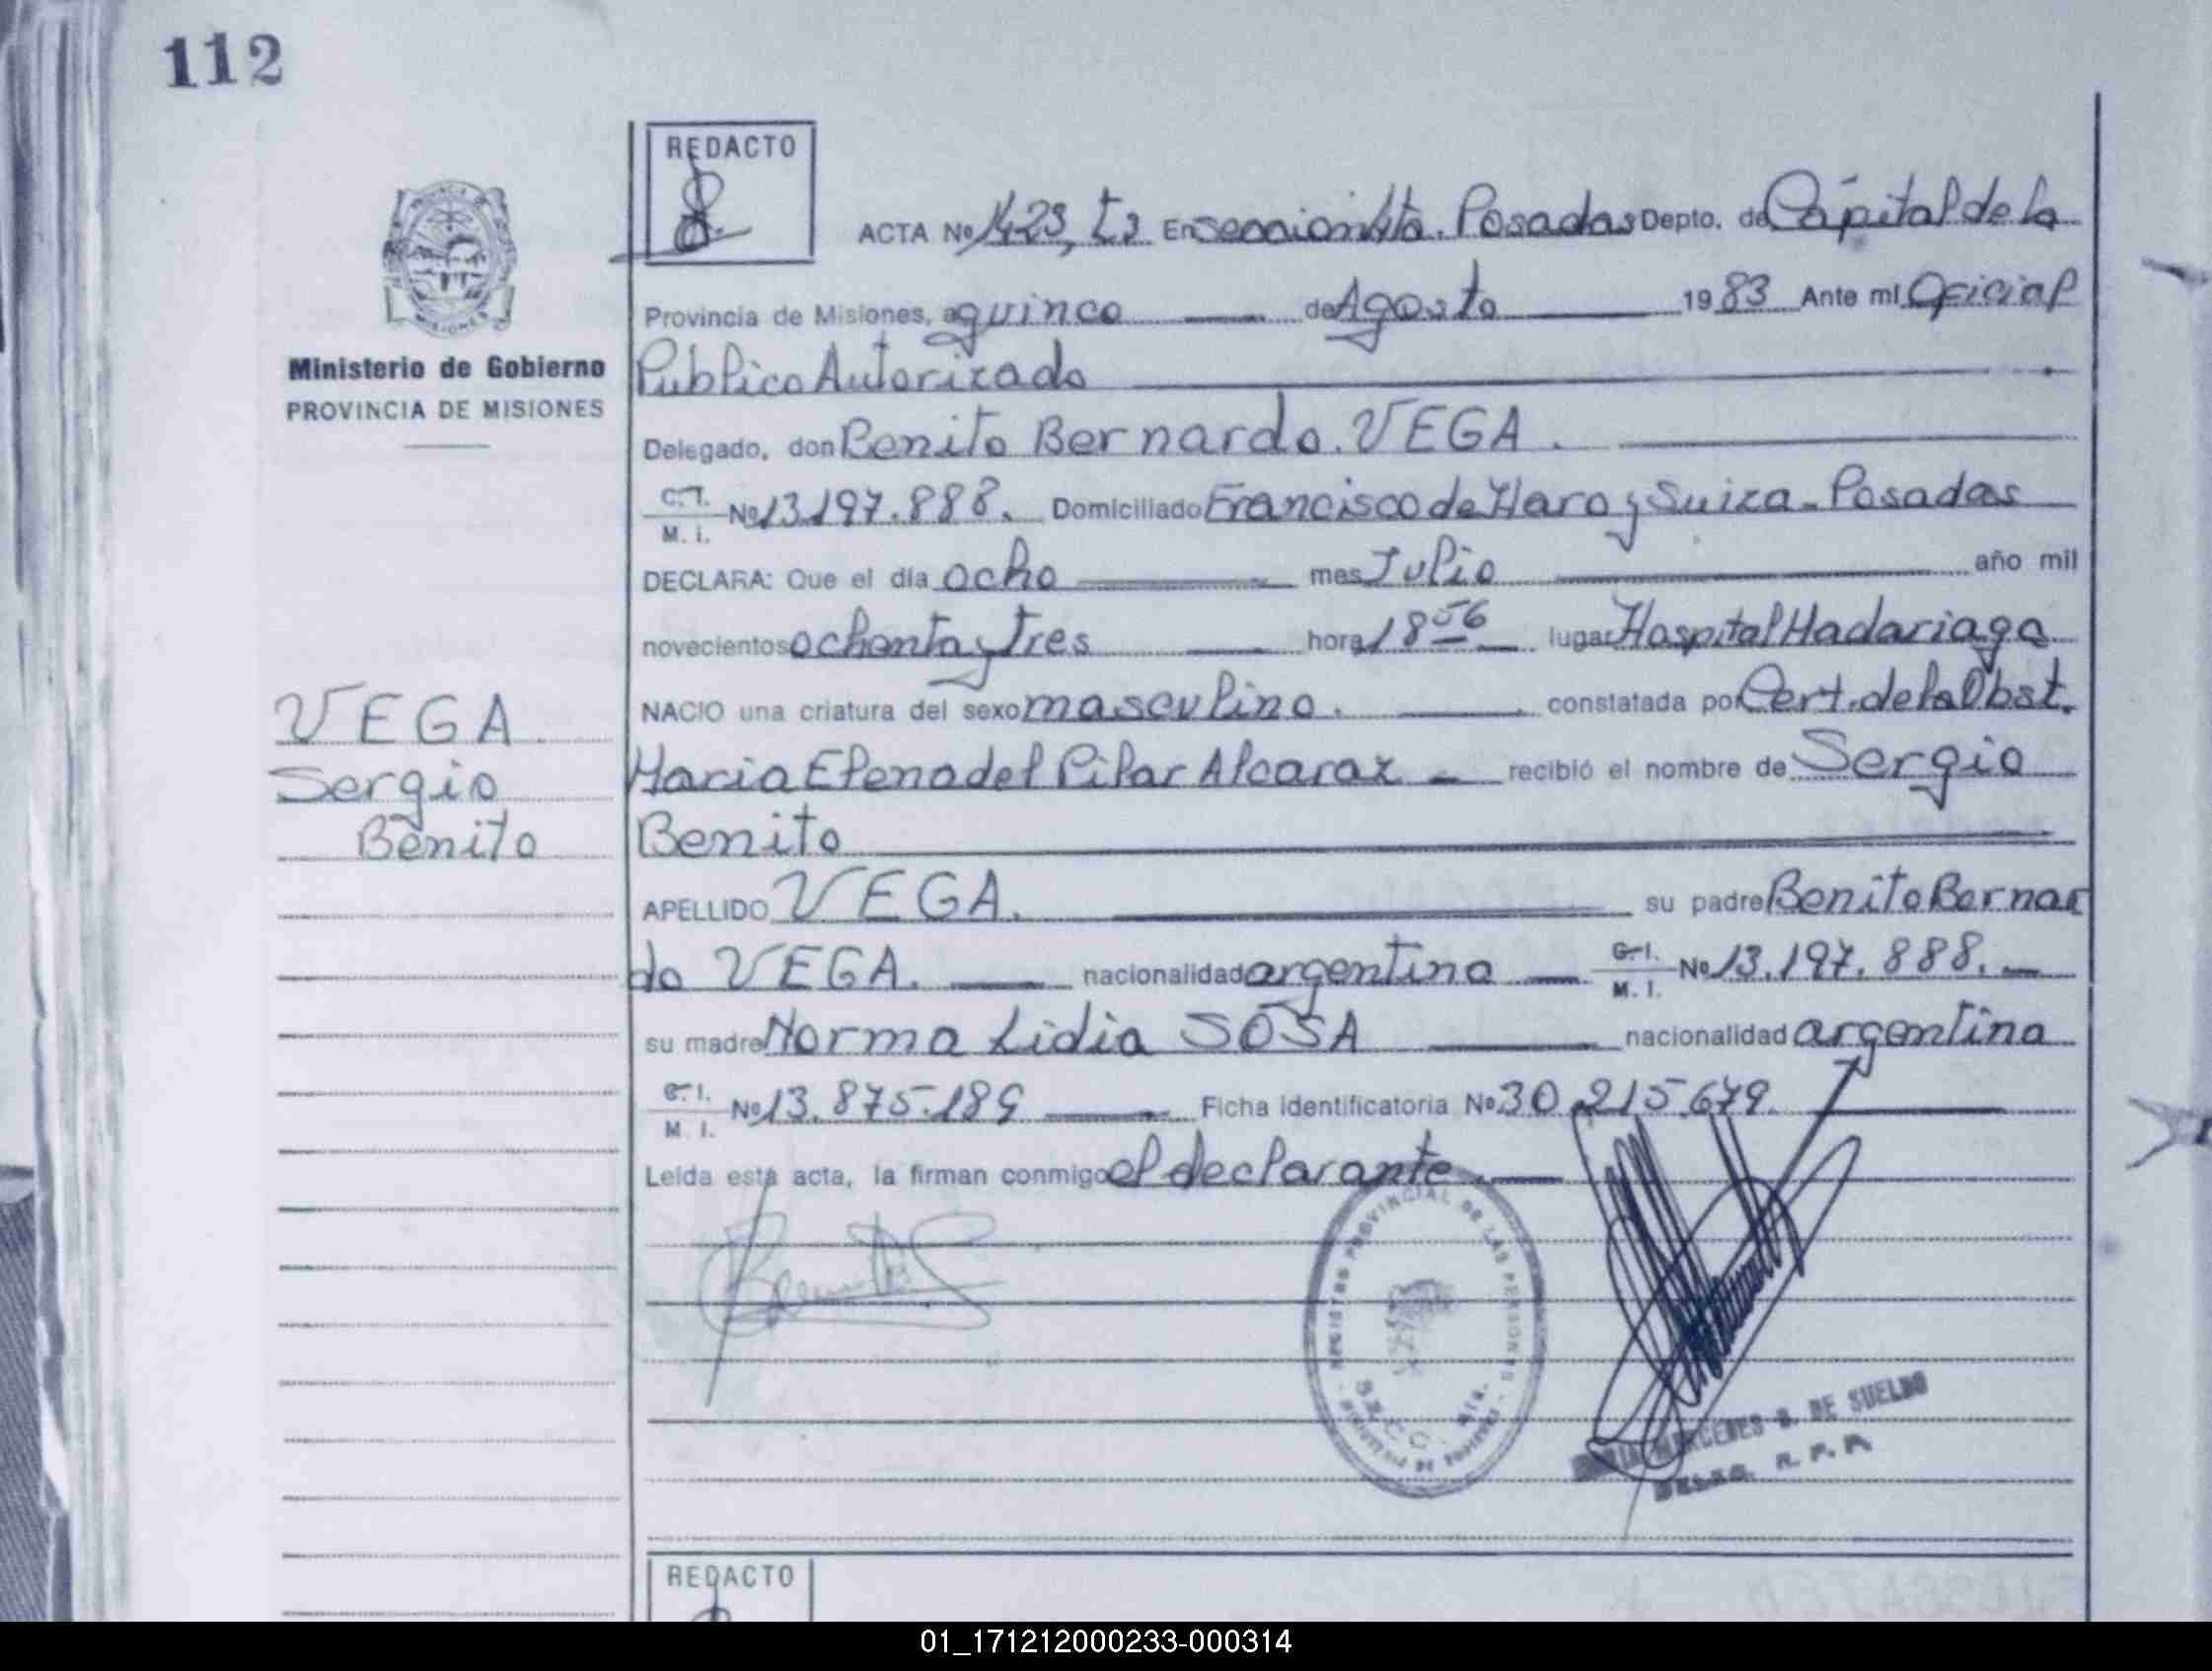 112
REDACTO
ACTA Nº 1423, Ts En sección 4ta. Posadas Depto. de Cápital de la
Provincia de Misiones, a quince de Agosto 1983 Ante mí Oficial
Publico Autorizado
Ministerio de Gobierno
PROVINCIA DE MISIONES
Delegado, don Benito Bernardo. VEGA.
C.I. M. I. Nº 13.197.888. Domiciliado Francisco de Haro y Suiza - Posadas
DECLARA: Que el día ocho mes Julio año mil
novecientos ochenta y tres hora 18 56 lugar Hospital Madariaga
NACIO una criatura del sexo masculino. constatada por Cert. de la Obst.
Maria Elena del Pilar Alcaraz - recibió el nombre de Sergio
Benito
VEGA
Sergio
Benito
APELLIDO VEGA. su padre Benito Bernar
do VEGA. nacionalidad argentina C.I. M. I. Nº 13.197.888.
su madre Norma Lidia SOSA nacionalidad argentina
C.I. M. I. Nº 13.875.189 Ficha identificatoria Nº 30.215.679.
Leída esta acta, la firman conmigo el declarante.
REGISTRO PROVINCIAL DE LAS PERSONAS
MERCEDES B. DE SUELDO
DELEG. R. P. P.
REDACTO
01_171212000233-000314